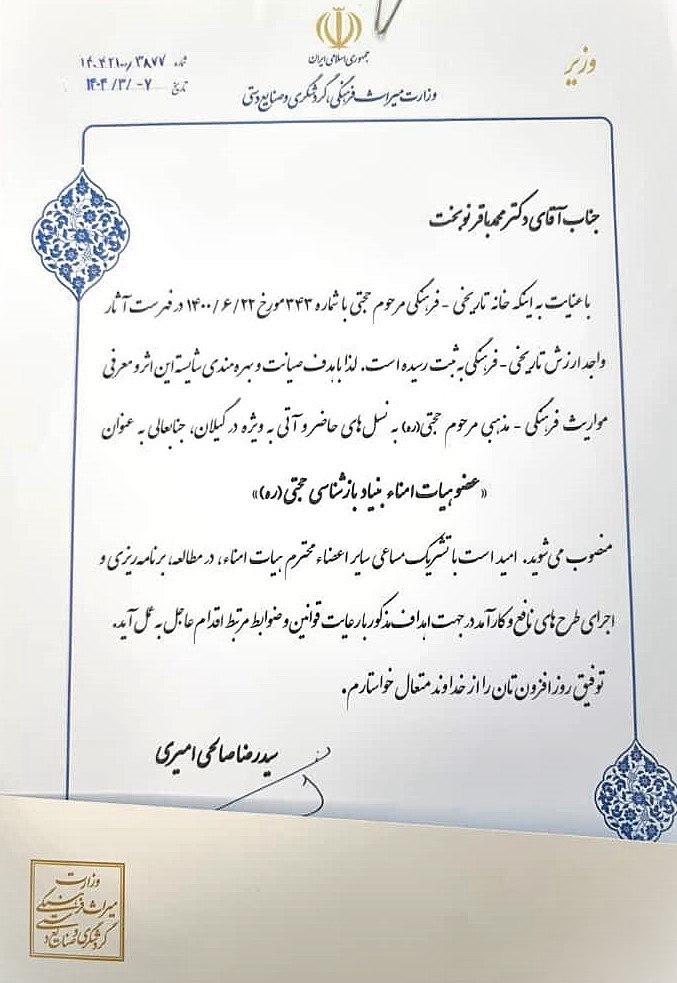 جمهوری اسلامی ایران
وزارت میراث فرهنگی، گردشگری و صنایع دستی
وزیر
شماره ۱۴۰۴۲۱۰۰/۳۸۷۷
تاریخ ۱۴۰۴/۳/۰۷
جناب آقای دکتر محمد باقر نوبخت
با عنایت به اینکه خانه تاریخی - فرهنگی مرحوم حجتی با شماره ۳۴۳ مورخ ۱۴۰۰/۶/۲۲ در فهرست آثار
واجد ارزش تاریخی - فرهنگی به ثبت رسیده است. لذا با هدف صیانت و بهره مندی شایسته این اثر و معرفی
مواریث فرهنگی - مذهبی مرحوم حجتی (ره) به نسل های حاضر و آتی به ویژه در گیلان، جنابعالی به عنوان
«عضو هیات امناء بنیاد بازشناسی حجتی (ره)»
منصوب می شوید. امید است با تشریک مساعی سایر اعضاء محترم هیات امناء، در مطالعه، برنامه ریزی و
اجرای طرح های نافع و کارآمد در جهت اهداف مذکور با رعایت قوانین و ضوابط مرتبط اقدام عاجل به عمل آید.
توفیق روز افزون تان را از خداوند متعال خواستارم.
سید رضا صالحی امیری
وزارت
میراث فرهنگی
گردشگری و صنایع دستی